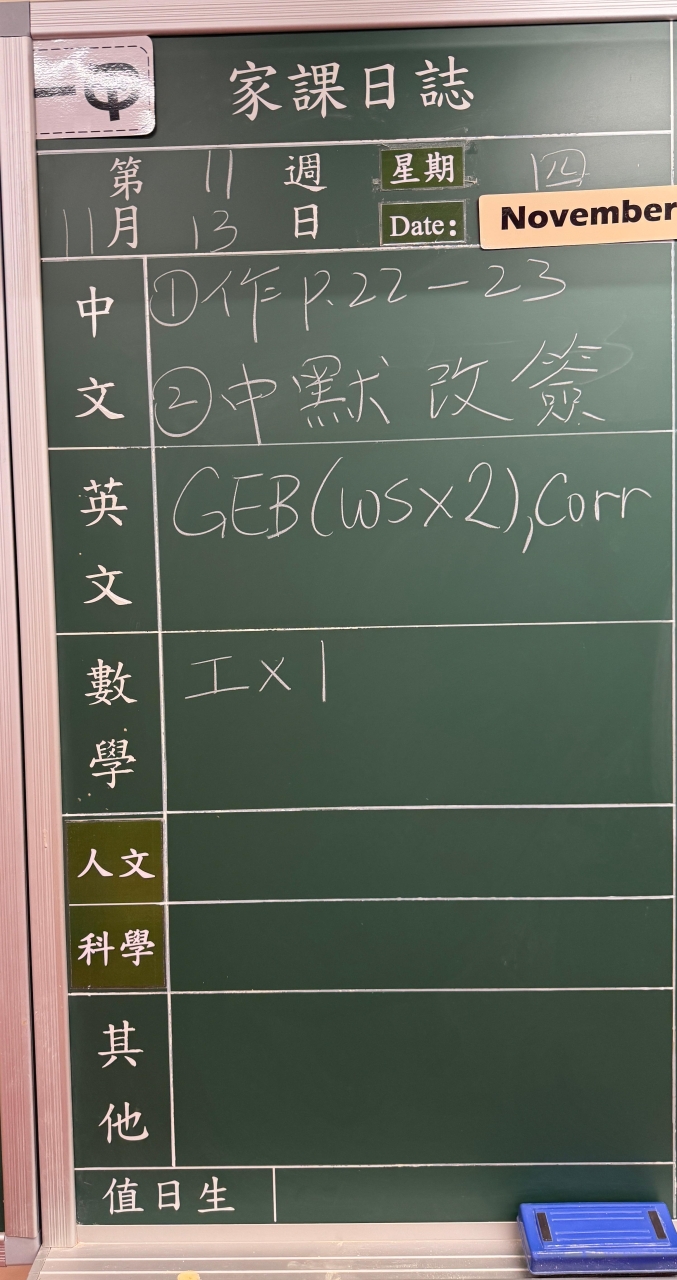 一中
家課日誌
第 11 週 星期 四
11月 13 日 Date: November
中文
①作 P.22-23
②中默改簽
英文
GEB(WSX2),Corr
數學
工X1
人文
科學
其他
值日生